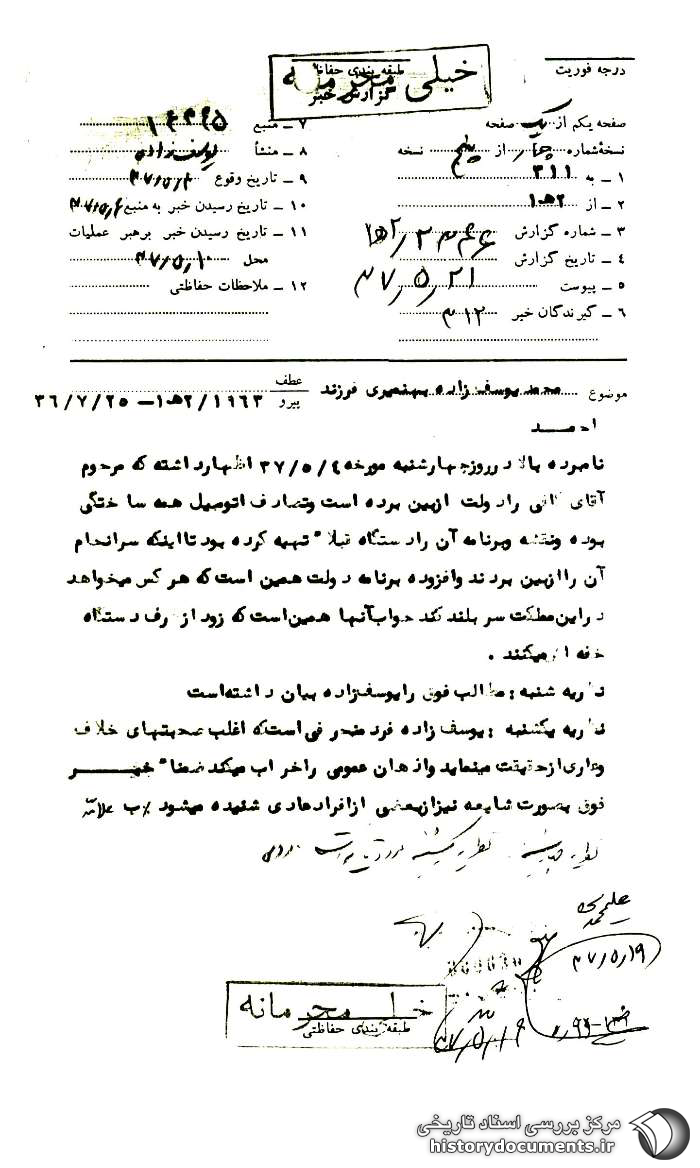 درجه فوریت
طبقه بندی حفاظتی
خیلی محرمانه
گزارش خبر
صفحه یکم از یک صفحه
نسخهٔ شماره چهار از پنج نسخه
۱ ـ به ۳۱۱
۲ ـ از ۲ه‍۱
۳ ـ شماره گزارش
۴ ـ تاریخ گزارش ۳۷/۵/۲۱
۵ ـ پیوست
۶ ـ گیرندگان خبر ۳۱۲
۷ ـ منبع
۸ ـ منشأ یوسف زاده
۹ ـ تاریخ وقوع ۳۷/۵/۴
۱۰ ـ تاریخ رسیدن خبر به منبع ۳۷/۵/۴
۱۱ ـ تاریخ رسیدن خبر برهبر عملیات
محل ۳۷/۵/۱۰
۱۲ ـ ملاحظات حفاظتی
موضوع محمد یوسف زاده بهنمیری فرزند
عطف
پیرو ۲/۱۹۶۳ه‍۱ ـ ۳۶/۷/۲۵
احمد
نامبرده بالا در روز چهارشنبه مورخه ۳۷/۵/۴ اظهار داشته که مرحوم
آقای کافی را دولت ازبین برده است وتصادف اتومبیل همه ساختگی
بوده ونقشه وبرنامه آن را دستگاه قبلا" تهیه کرده بود تا اینکه سرانجام
آن را ازبین بردند وافزوده برنامه دولت همین است که هر کس میخواهد
در این مملکت سر بلند کند جواب آنها همین است که زود از طرف دستگاه
خفه اش میکنند .
نظریه شنبه : مطالب فوق را یوسفزاده بیان داشته است
نظریه یکشنبه : یوسف زاده فرد منحرفی است که اغلب صحبتهای خلاف
وعاری از حقیقت مینماید واذهان عمومی را خراب میکند ضمنا" خبر
فوق بصورت شایعه نیز از بعضی از افراد عادی شنیده میشود
نظریه سه شنبه
۳۷/۵/۱۹
خیلی محرمانه
طبقه بندی حفاظتی
۳۷/۵/۱۶
مرکز بررسی اسناد تاریخی
historydocuments.ir